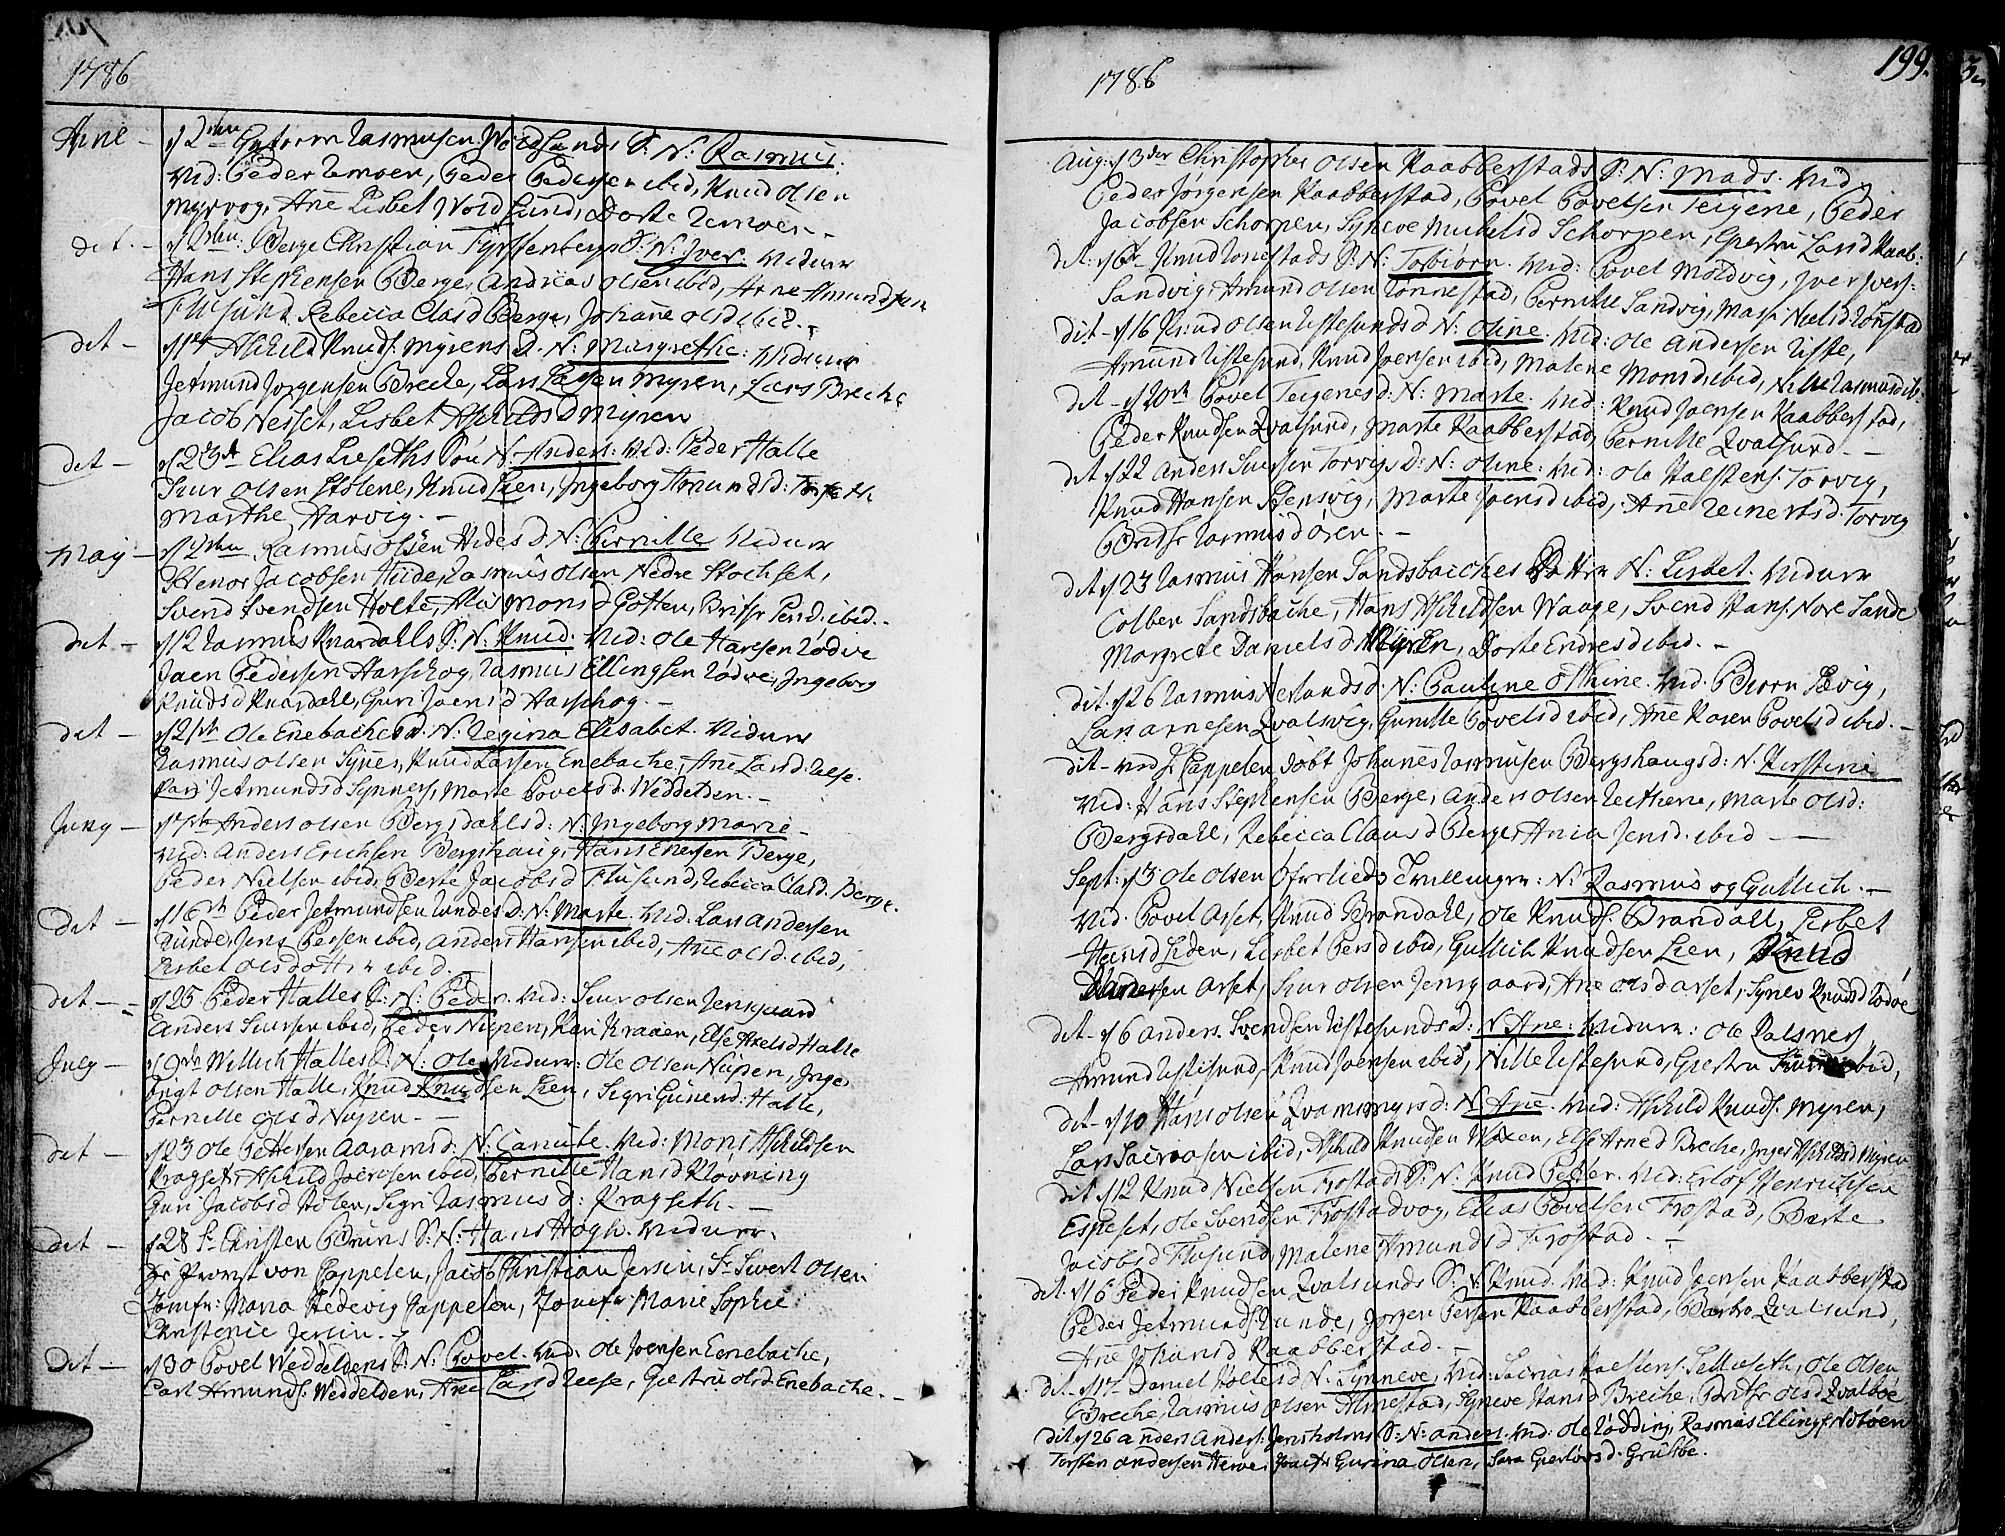 1786
Arne - d 2den Gutorm Rasmusen Noidsunds S: N: Rasmus.
Vid: Peder Remoen, Peder Pedersen ibid, Knud Olsen
Myrvog, Ane Lisbet Noidsund, Dorte Remoen -
dit - d 2den Berge Christian S: N: Iver. Vidurr
Hans Stephensen Berge, Andreas Olsen ibid, Arne Amundsen
Flusund Rebecca Clasd Berge, Johane Olsd ibid. -
dit - Aschild Knuds: Myrens D. N: Margrethe: Vidurr
Jetmund Jorgensen Breche, Lars Larsen Myren, Lars Breche
Jacob Nesset, Lisbet Aschilds D Myren
dit - d 23d Elias Lisæths Søn N: Anders: Vid: Peder Halle
Siur Olsen Stølene, Knud Lien, Ingeborg Amundsd:
Marthe Harvig. -
May - d 2den Rasmus Olsen Hides D N: Pernille Vidurr
Stenor Jacobsen Hiide, Rasmus Olsen Nedre Stochset,
Svend Svendsen Holte, Mons d Gotten, Brithe Persd. ibid. -
dit - d 12 Rasmus Knardahls S: N: Knud. Vid: Ole Hansen Rødve
Joen Pedersen Harschog, Rasmus Ellingsen Rødve, Ingeborg
Knuds d Knardahl, Guri Joens d Harschog. -
dit - d 21de Ole Enebaches D. N: Regina Elisabet. Vidurr
Rasmus Olsen Synes, Knud Larsen Enebache, Ane Larsd. Rese.
Kari Jetmunds d Synnes, Marte Povelsd. Weddelden. -
Juny - Anders Olsen Bergsdahlsd: N: Ingeborg Marie -
Vid: Anders Erichsen Bergshaug, Hans Enersen Berge,
Peder Nielsen ibid, Berte Jacobs d Flusund, Rebecca Clasd. Berge.
dit - d 16de Peder Jetmundsen Rundes D: N: Marte. Vid. Lars Andersen
Runde, Jens Persen ibid, Anders Hansen ibid, Ane Olsd. ibid,
Lisbet Olsdotter ibid.
dit - d 25 Peder Halles S: N: Peder. Vid: Siur Olsen Jensgaard
Anders Siursen ibid, Peder Nupen, Kari Kraaen, Else Axelsd Halle
July - d 9de Willich Halles S: N: Ole. Vidurr: Ole Olsen Nupen, Inge
brigt Olsen Halle, Knud Knudsen Lien, Sigri Gunersd: Halle,
Pernille Olsd Nupen. -
dit - d 23 Ole Pettersen Aaramsd: N: Canute. Vid: Mons Aschildsen
Kragset, Aschild Joensen ibid, Pernille Hansd Klovning
Guri Jacobsd Holen, Sigri Rasmus d: Kragseth. -
dit - d 28 Sr. Christen Bruns S: N: Hans Høgh. Vidurr.
Hr Provst von Cappelen, Jacob Christian Jersin, Sr. Sivert Olsen
Jomfr: Maria Hedevig Cappelen, Jomfr Marie Sophie
Christenie Jersin. -
dit - d 30 Povel Weddeldens S: N: Povel. Vid: Ole Joensen Enebache,
Carl Amunds. Weddelden, Ane Larsd Reese, Giertru Olsd Enebache. -
1786
199.
Aug: d 13der Christopher Olsen Raabberstads S: N: Mads. Vid:
Peder Jørgensen Raabberstad, Povel Povelsen Teigene, Peder
Jacobsen Schorpen, Syneve Michelsd Schorpen, Giertru Larsd Raab:
dit: d 6te Knud Tonestads S: N: Torbiørn. Vid: Povel Moldvig, Iver Ivers:
Sandvig, Amund Olsen Tonnestad, Pernille Sandvig, Masi Nielsd Tonstad
dit - d 16 Knud Olsen Ristesunds d N: Oline. Vid: Ole Andersen Riste,
Amund Ristesund, Knud Joensen ibid, Malene Monsd. ibid, Nille Rasmusd ib:
dit - d 20de Povel Teigenes d: N: Marte. Vid: Knud Joensen Raabberstad,
Peder Knudsen Qvalsund, Marte Raabberstad, Pernille Qvalsund. -
dit d 22 Anders Siursen Torvigs D: N: Oline: Vid: Ole Halstens. Torvig,
Knud Hansen Stensvig, Marte Joensd ibid, Ane Reinertsd. Torvig
Brithe Rasmusd Osen. -
dit d 23 Rasmus Hansen Sandsbaches Datter N: Lisbet. Vidurr
Colben Sandsbache, Hans Aschildsen Waage, Svend Hans: Nore Sande
Margrete Daniels d Myren, Dorte Endresd ibid. -
dit. d 26 Rasmus Nerlandsd: N: Pauline Othine. Vid: BiørnÆvig,
Lars Arnesen Qvalsvig, Gunille Povelsd ibid, Ane Karen Povelsd ibid. -
dit - ved Hr. Cappelen døbt Johanes Rasmusen Bergshaugs d: N. Kirstine
Vid: Hans Stephensen Berge, Anders Olsen Leithene, Marte Olsd:
Bergsdahl, Rebecca Claus d Berge, Ania Jensd. ibid -
Sept: d 3 Ole Olsen Ofverlieds Tvillinger: N: Rasmus og Gullich. -
Vid. Povel Aset, Knud Brandahl, Ole Knuds: Brandahl, Lisbet
Hansd Liden, Lisbet Persd ibid, Gullich Knudsen Lien, Knud
Andersen Aset, Siur Olsen Jensgaard, Ane Olsd Aset, Synev Knudsd Rødve
dit - d 6 Anders Svendsen Ristesunds D: N: Ane: Vidurr: Ole Kalsnes,
Amund Ristesund, Knud Joensen ibid, Nille Ristesund, Giertru ibid,
dit - d 10 Hans Olsen Qvamsmyrsd: N: Ane. Vid: Aschild Knuds. Myren,
Lars Sacriasen ibid, Aschild Knudsen Waxen, Else Arned Breche, Inger Aschildsd Myren
dit d 12 Knud Nielsen Frostads S: N: Knud Peder. Vid: Erlof Henrichsen
Espeset, Ole Svendsen Frostadvog, Elias Povelsen Frostad, Berte
Jacobsd Flusund, Malene Amundsd Frostad. -
dit. d 16 Peder Knudsen Qvalsunds S: N: Knud. Vid: Knud Joensen Raabberstad
Peder Jetmunds Runde, Jørgen Persen Raabberstad, Barbro Qvalsund,
Ane Johansd Raabberstad. -
dit - d 17 Daniel Holtesd, N: Synneve, Vid: Sacrias Halstens. Selleseth, Ole Olsen
Breche, Rasmus Olsen Almestad, Syneve Hansd Breche, Brithe Olsd Qvalsøe
dit d 26 Anders Anders: Jensholms S: N: Anders. Vid: Ole Rødding, Rasmus Ellings: Notøen
Torsten Andersen Herøe, Jomfr Gurina Olsen, Sara Giertløvsd. Grubbe.